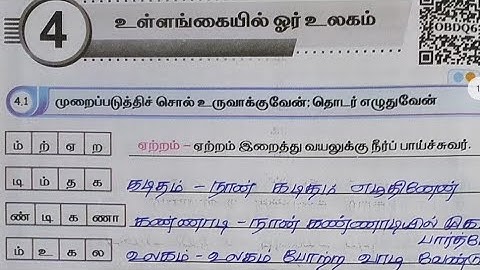 4 உள்ளங்கையில் ஓர் உலகம்
OBDQ6
4.1 முறைப்படுத்திச் சொல் உருவாக்குவேன்; தொடர் எழுதுவேன்
ம் ற் ஏ ற ஏற்றம் – ஏற்றம் இறைத்து வயலுக்கு நீர்ப் பாய்ச்சுவர்.
டி ம் த க கடிதம் – நான் கடிதம் எழுதினேன்
ண் டி க ணா கண்ணாடி – நான் கண்ணாடியில்
பார்த்தே
ம் உ க ல உலகம் – உலகம் போற்ற வாழ வேண்டு